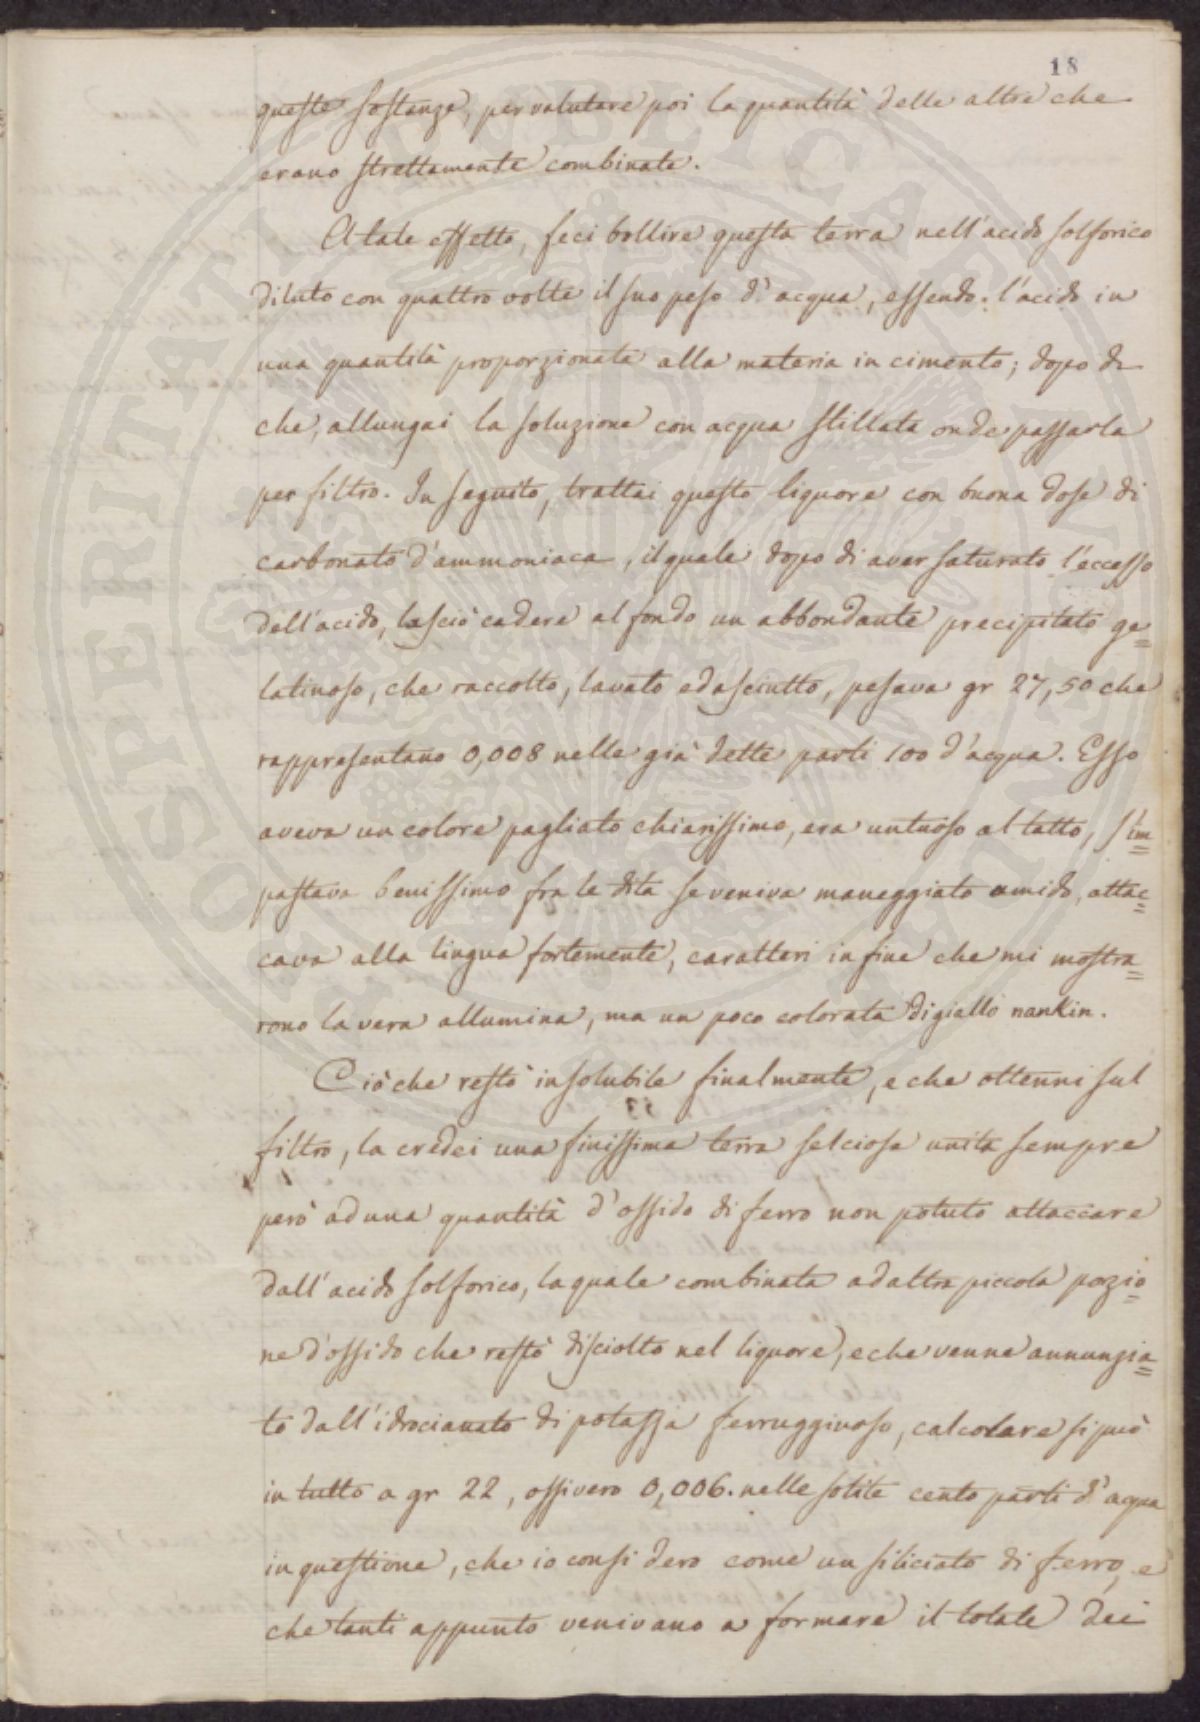 18
queste sostanze, per valutare poi la quantità delle altre che
erano strettamente combinate.
A tale effetto, feci bollire questa terra nell'acido solforico
diluto con quattro volte il suo peso d'acqua, essendo l'acido in
una quantità proporzionata alla materia in cimento; dopo di
che, allungai la soluzione con acqua stillata onde passarla
per filtro. In seguito, trattai questo liquore con buona dose di
carbonato d'ammoniaca, il quale dopo di aver saturato l'eccesso
dell'acido, lasciò cadere al fondo un abbondante precipitato ge=
latinoso, che raccolto, lavato ed asciutto, pesava gr 27,50 che
rappresentano 0,008 nelle già dette parti 100 d'acqua. Esso
aveva un colore pagliato chiarissimo, era untuoso al tatto, s'im=
pastava benissimo fra le dita se veniva maneggiato umido, attac=
cava alla lingua fortemente, caratteri in fine che mi mostra=
rono la vera allumina, ma un poco colorata di giallo nankin.
Ciò che restò insolubile finalmente, e che ottenni sul
filtro, la credei una finissima terra selciosa unita sempre
però ad una quantità d'ossido di ferro non potuto attaccare
dall'acido solforico, la quale combinata ad altra piccola porzio=
ne d'ossido che restò disciolto nel liquore, e che venne annunzia=
to dall'idrocianato di potassa ferrugginoso, calcolare si può
in tutto a gr 22, ossivero 0,006. nelle solite cento parti d'acqua
in questione, che io considero come un siliciato di ferro, e
che tanti appunto venivano a formare il totale dei
PROSPERITATI PUBLICAE AUGENDAE